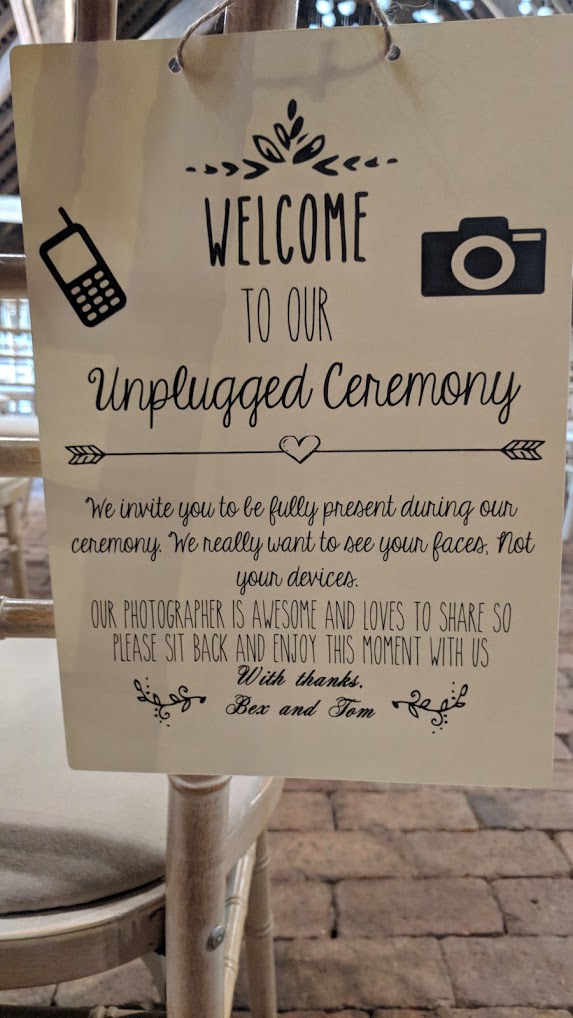 WELCOME
TO OUR
Unplugged Ceremony
We invite you to be fully present during our
ceremony. We really want to see your faces, Not
your devices.
OUR PHOTOGRAPHER IS AWESOME AND LOVES TO SHARE SO
PLEASE SIT BACK AND ENJOY THIS MOMENT WITH US
With thanks,
Bex and Tom